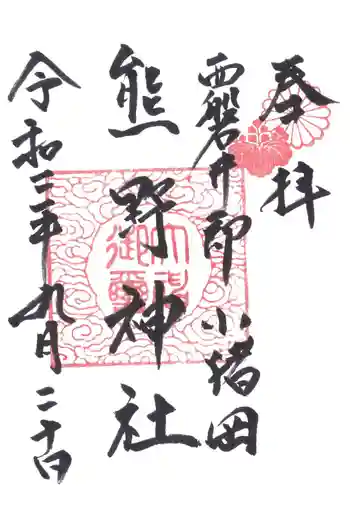 奉拝
西磐井郡 小猪岡
熊野神社
令和二年 九月 二十日